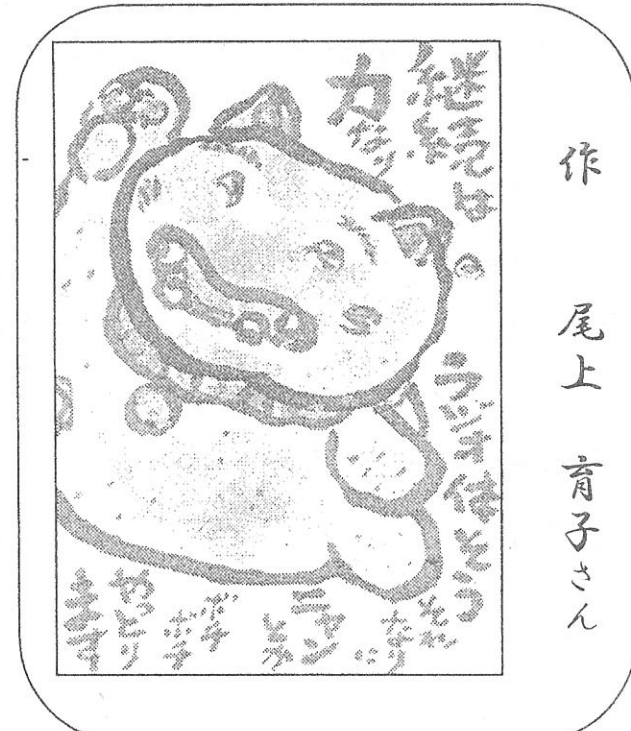 作 尾上 育子さん
継続は
力なり
ラジオ体そう
それ
なりに
ニャン
とか
ボチ
ボチ
やっとり
ます